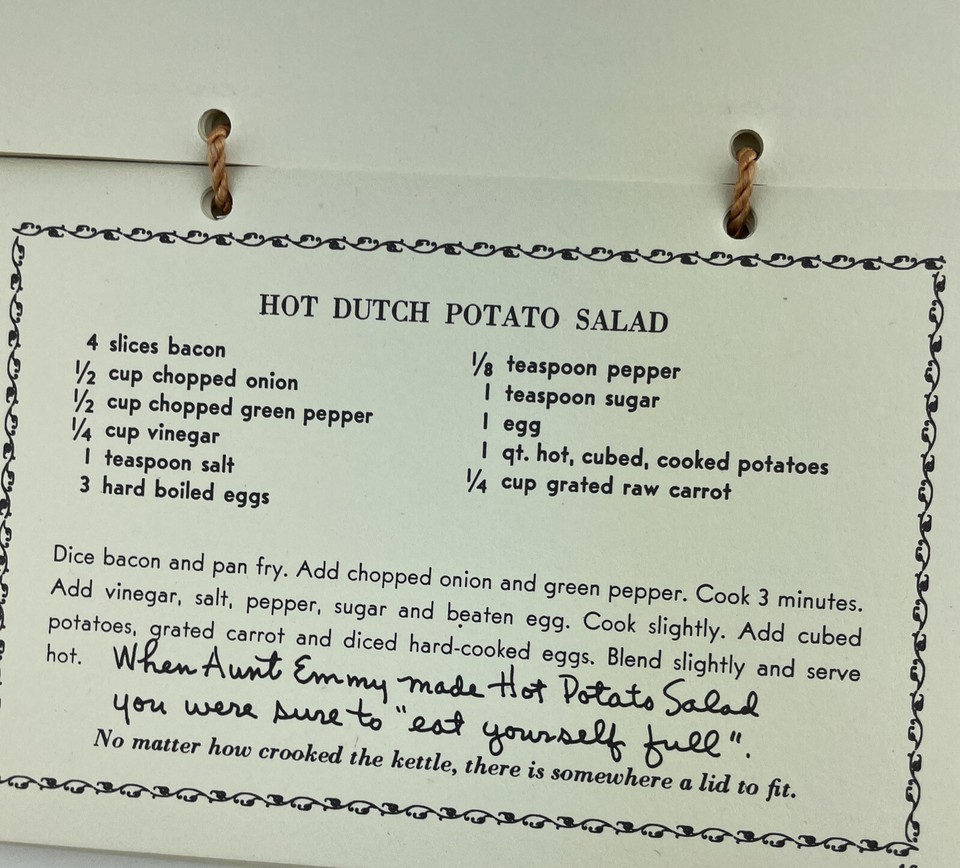 HOT DUTCH POTATO SALAD
4 slices bacon
½ cup chopped onion
½ cup chopped green pepper
¼ cup vinegar
1 teaspoon salt
3 hard boiled eggs
⅛ teaspoon pepper
1 teaspoon sugar
1 egg
1 qt. hot, cubed, cooked potatoes
¼ cup grated raw carrot
Dice bacon and pan fry. Add chopped onion and green pepper. Cook 3 minutes.
Add vinegar, salt, pepper, sugar and beaten egg. Cook slightly. Add cubed
potatoes, grated carrot and diced hard-cooked eggs. Blend slightly and serve
hot. When Aunt Emmy made Hot Potato Salad
you were sure to "eat yourself full".
No matter how crooked the kettle, there is somewhere a lid to fit.